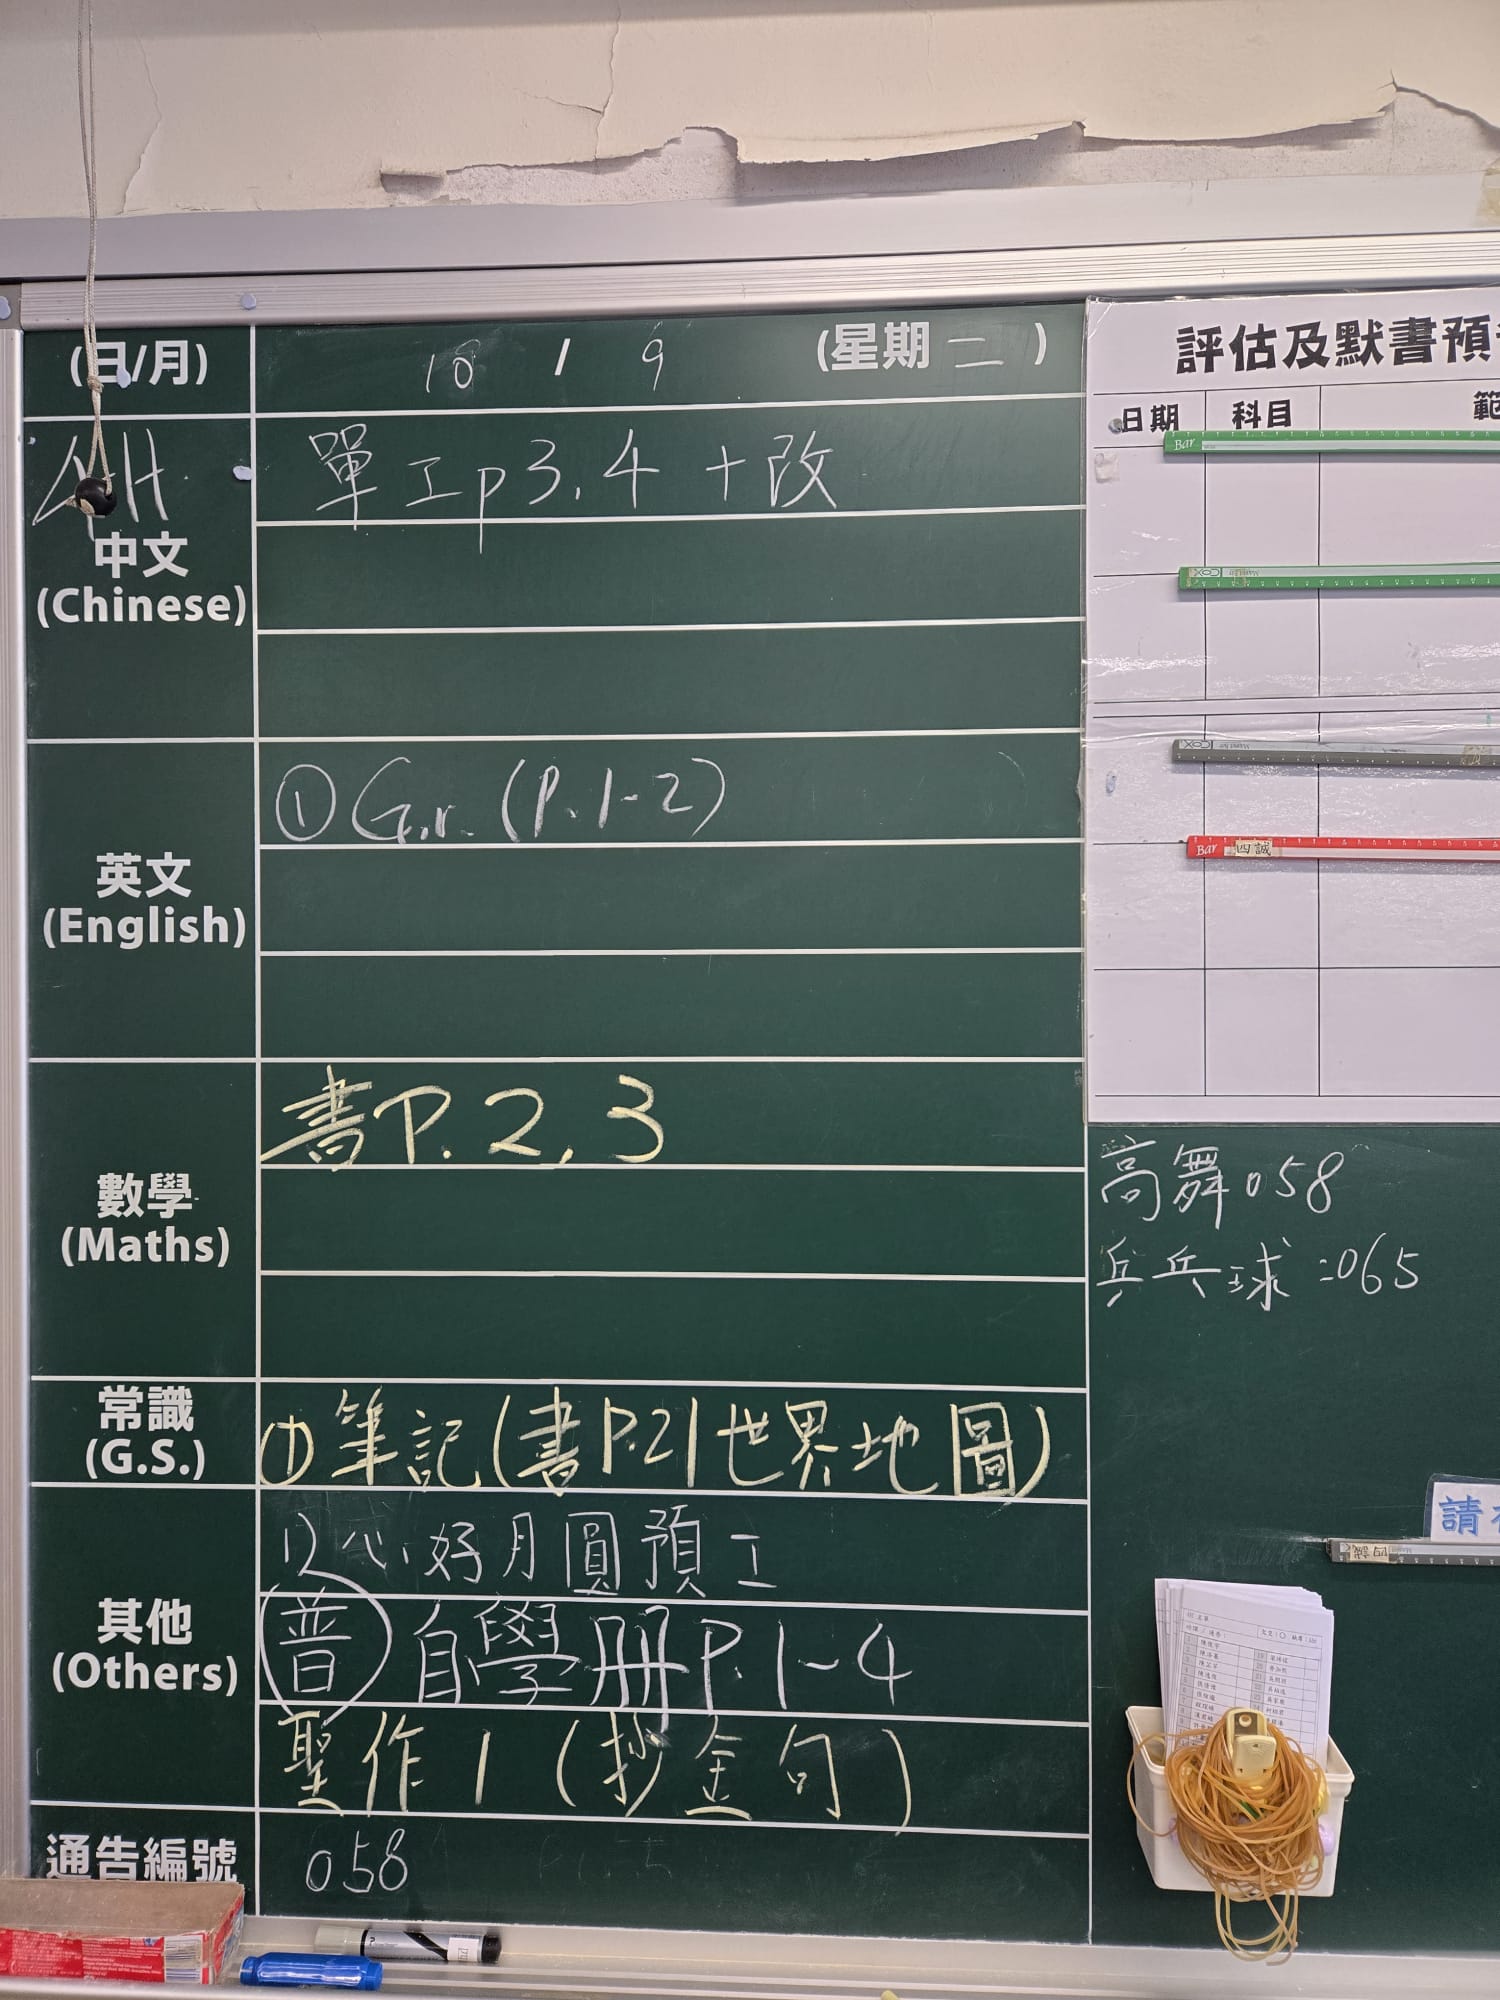 (日/月) 10 / 9 (星期 二 )
4H
中文
(Chinese)
單工p3,4 +改
英文
(English)
① Gr. (P.1-2)
數學
(Maths)
書P.2,3
常識
(G.S.)
① 筆記(書P.21世界地圖)
其他
(Others)
1) 心好月圓預工
普 自學册P.1-4
聖作1(抄金句)
通告編號
058
評估及默書預
日期 科目 範
Bar
COX
COX
Bar 四誠
高舞058
乒乓球:065
請
四誠